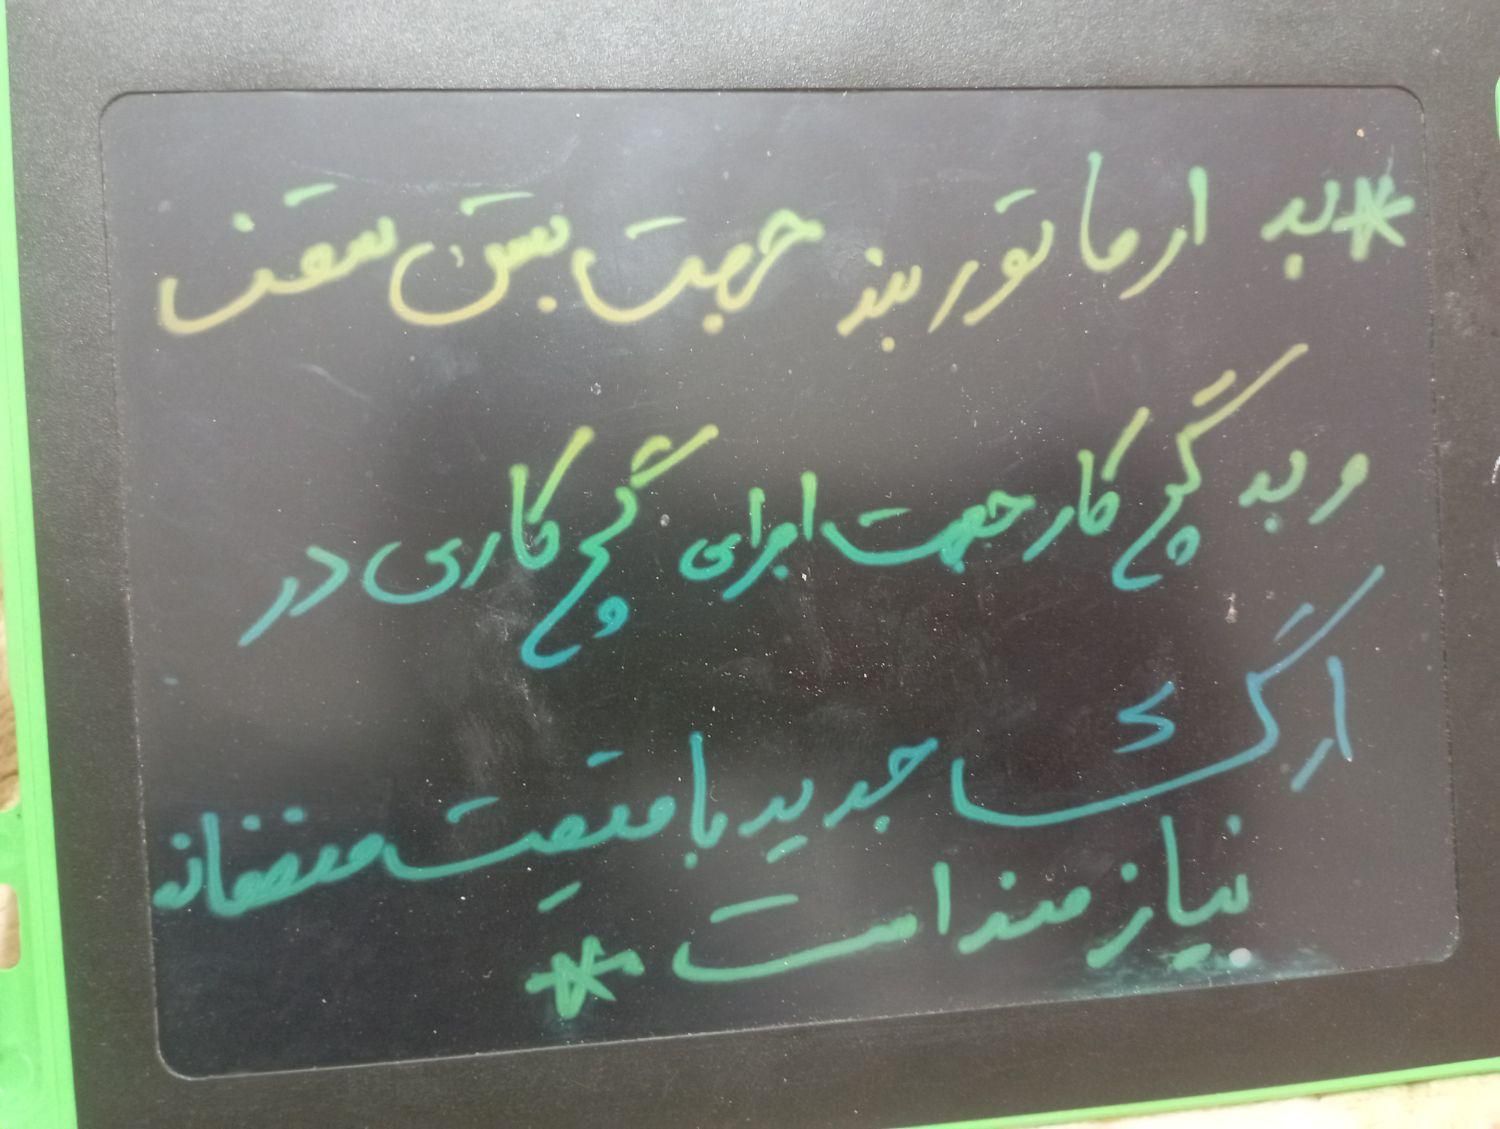 *به ارماتور بند جهت بستن سقف
و به گچ کار جهت اجرای گچ کاری در
ارگ جدید با قیمت منصفانه
نیاز مند است *